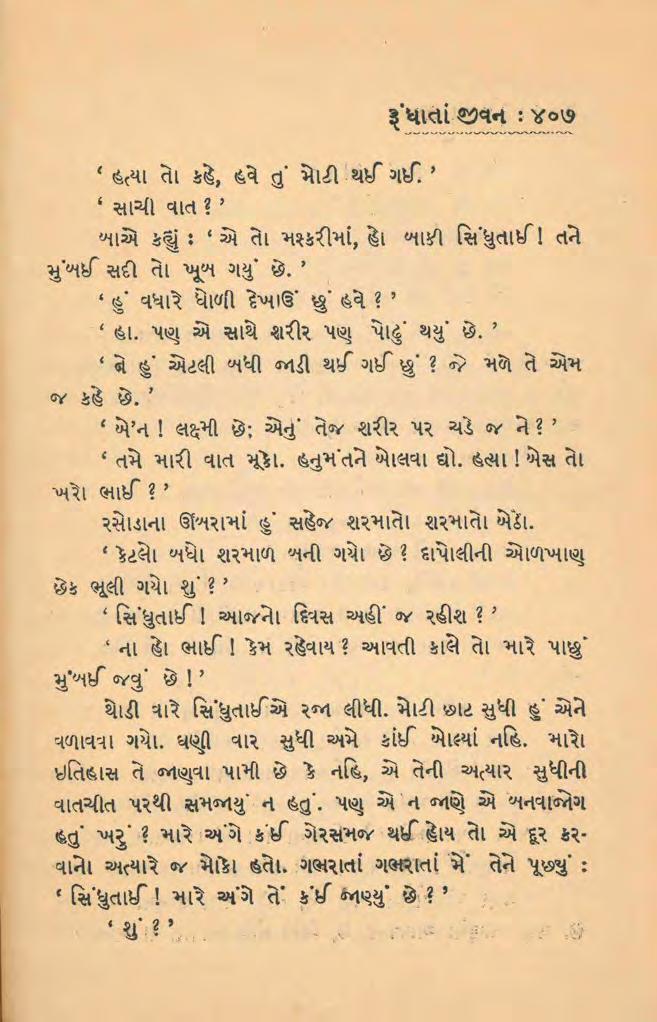 રૂંધાતાં જીવન : ૪૦૭
‘ હત્યા તો કહે, હવે તું મોટી થઈ ગઈ. ’
‘ સાચી વાત ? ’
બાએ કહ્યું : ‘ એ તો મશ્કરીમાં, હો બાકી સિંધુતાઈ ! તને
મુંબઈ સદી તો ખૂબ ગયું છે. ’
‘ હું વધારે ધોળી દેખાઉં છું હવે ? ’
‘ હા. પણ એ સાથે શરીર પણ પોઢું થયું છે. ’
‘ બે હું એટલી બધી જાડી થઈ ગઈ છું ? જે મળે તે એમ
જ કહે છે. ’
‘ બે’ન ! લક્ષ્મી છે; એનું તેજ શરીર પર ચડે જ ને ? ’
‘ તમે મારી વાત મૂકો. હનુમંતને બોલવા દ્યો. હત્યા ! બેસ તો
ખરો ભાઈ ? ’
રસોડાના ઊંબરામાં હું સહેજ શરમાતો શરમાતો બેઠો.
‘ કેટલો બધો શરમાળ બની ગયો છે ? દાપોલીની ઓળખાણ
છેક ભૂલી ગયો શું ? ’
‘ સિંધુતાઈ ! આજનો દિવસ અહીં જ રહીશ ? ’
‘ ના હો ભાઈ ! કેમ રહેવાય ? આવતી કાલે તો મારે પાછું
મુંબઈ જવું છે ! ’
થોડી વારે સિંધુતાઈએ રજા લીધી. મોટી છાટ સુધી હું એને
વળાવવા ગયો. ઘણી વાર સુધી અમે કાંઈ બોલ્યાં નહિ. મારો
ઇતિહાસ તે જાણવા પામી છે કે નહિ, એ તેની અત્યાર સુધીની
વાતચીત પરથી સમજાયું ન હતું. પણ એ ન જાણે એ બનવાજોગ
હતું ખરું ? મારે અંગે કંઈ ગેરસમજ થઈ હોય તો એ દૂર કર-
વાનો અત્યારે જ મોકો હતો. ગભરાતાં ગભરાતાં મેં તેને પૂછ્યું :
‘ સિંધુતાઈ ! મારે અંગે તેં કંઈ જાણ્યું છે ? ’
‘ શું ? ’